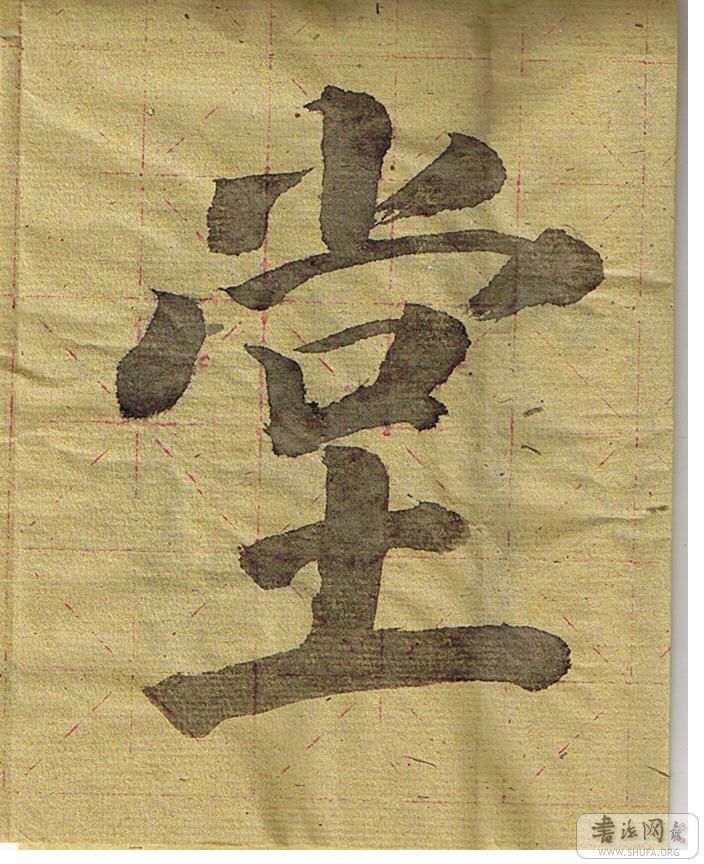 堂
书法网
WWW.SHUFA.ORG